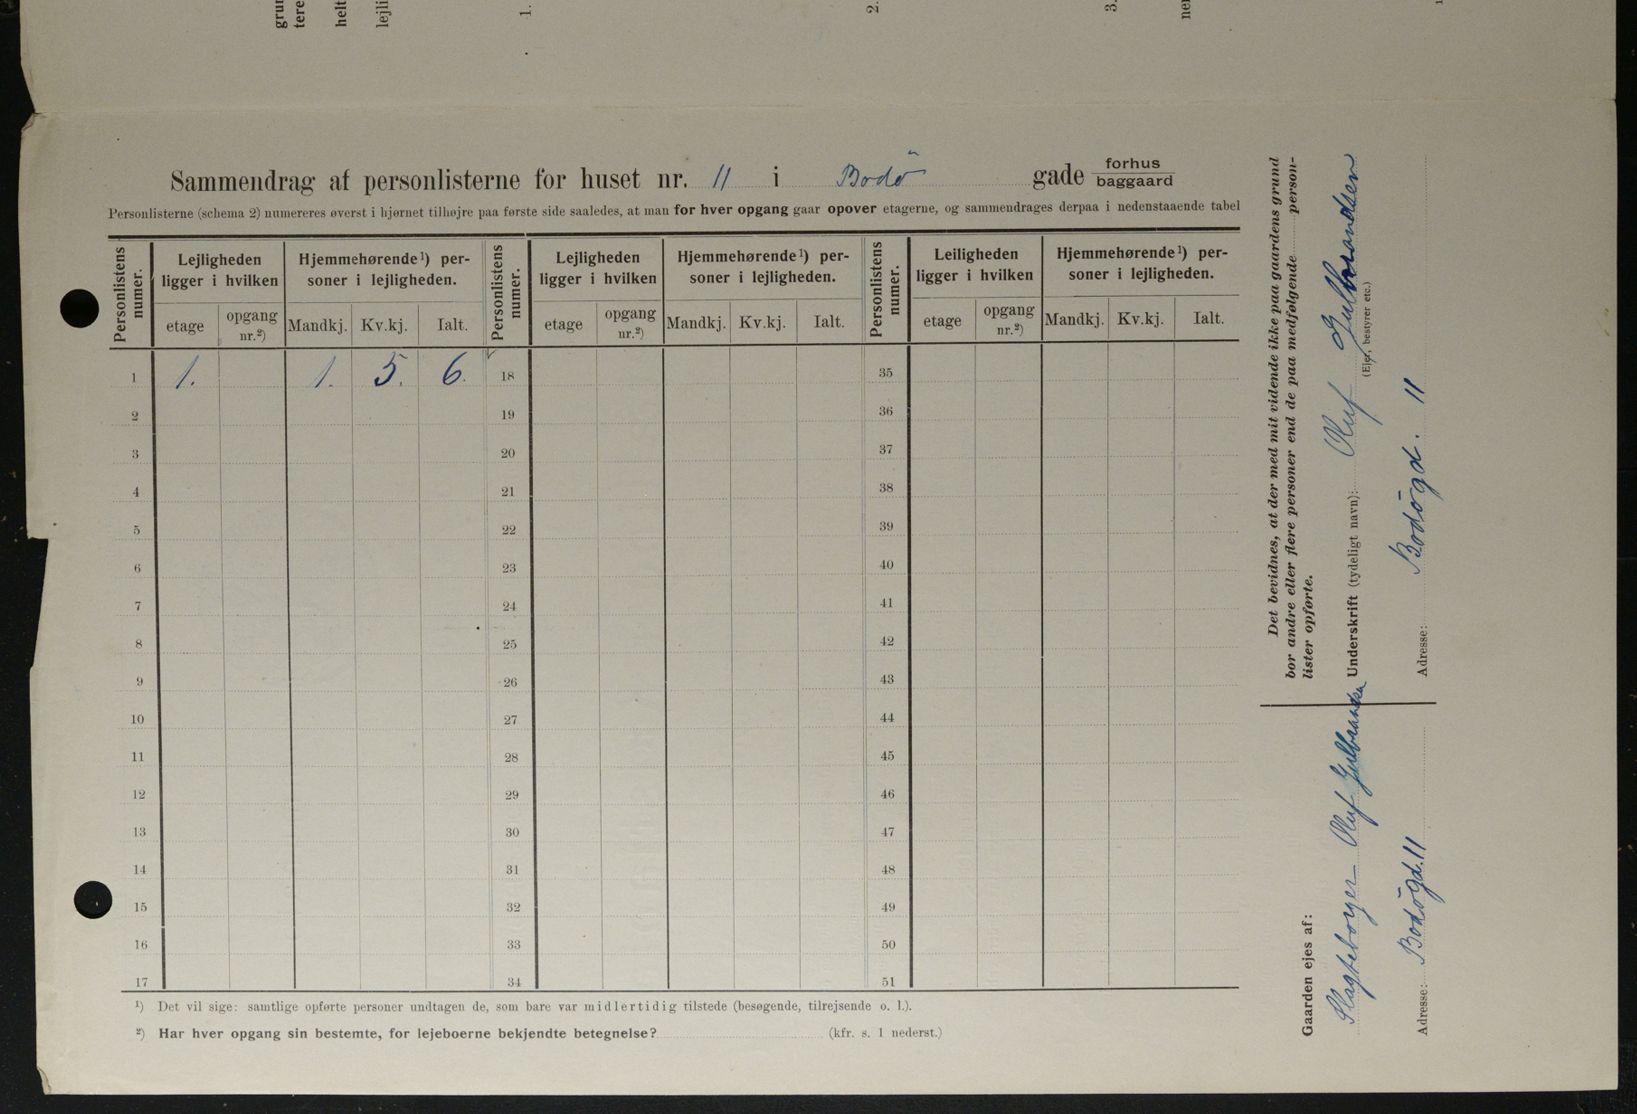 grun
tere
helt
lejli
1.
2.
3.
nen
Sammendrag af personlisterne for huset nr. 11 i Bodö gade forhus
baggaard
Personlisterne (schema 2) numereres øverst i hjørnet tilhøjre paa første side saaledes, at man for hver opgang gaar opover etagerne, og sammendrages derpaa i nedenstaaende tabel
Personlistens numer. Lejligheden ligger i hvilken Hjemmehørende¹) personer i lejligheden. Personlistens numer. Lejligheden ligger i hvilken Hjemmehørende¹) personer i lejligheden. Personlistens numer. Leiligheden ligger i hvilken Hjemmehørende¹) personer i lejligheden.
etage opgang nr.²) Mandkj. Kv.kj. Ialt. etage opgang nr.²) Mandkj. Kv.kj. Ialt. etage opgang nr.²) Mandkj. Kv.kj. Ialt.
1 1. 1. 5. 6. 18 35
2 19 36
3 20 37
4 21 38
5 22 39
6 23 40
7 24 41
8 25 42
9 26 43
10 27 44
11 28 45
12 29 46
13 30 47
14 31 48
15 32 49
16 33 50
17 34 51
¹) Det vil sige: samtlige opførte personer undtagen de, som bare var midlertidig tilstede (besøgende, tilrejsende o. l.).
²) Har hver opgang sin bestemte, for lejeboerne bekjendte betegnelse? (kfr. s. 1 nederst.)
Det bevidnes, at der med mit vidende ikke paa gaardens grund
bor andre eller flere personer end de paa medfølgende person-
lister opførte.
Underskrift (tydeligt navn): Oluf Gulbrandsen
(Ejer, bestyrer etc.)
Adresse: Bodögd. 11
Gaarden ejes af:
Slagteborger Oluf Gulbrandsen
Adresse: Bodögd. 11